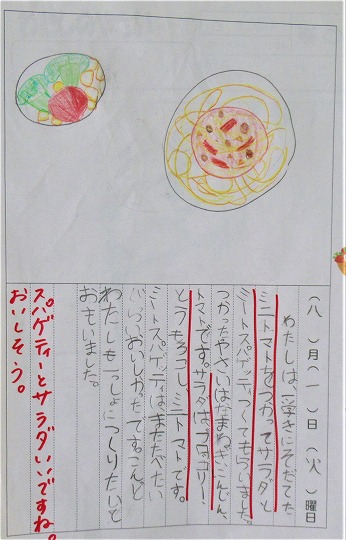 (八)月(一)日(火)曜日
わたしは、一学きにそだてた
ミニトマトをつかってサラダと
ミートスパゲティつくってもらいました。
つかったやさいはたまねぎ、にんじん、
トマトです。サラダはブロッコリー、
とうもろこし、ミニトマトです。
ミートスパゲティは、またたべたい
ぐらいおいしかったです。こんど
わたしも一しょにつくりたいと
おもいました。
スパゲティーとサラダいいですね。
おいしそう。